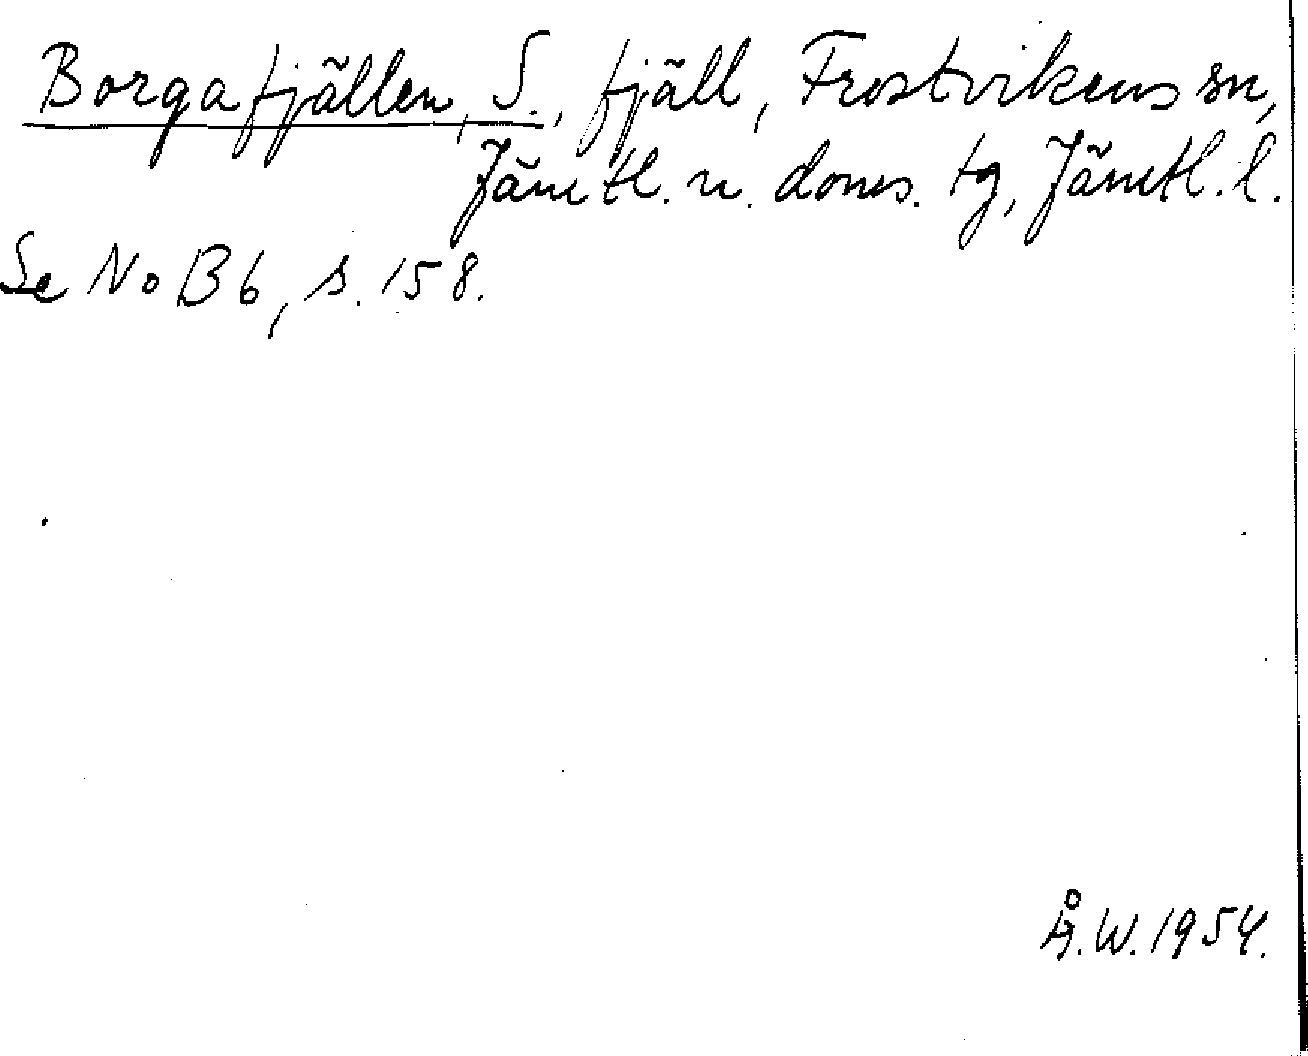 Borgafjällen, S., fjäll, Frostvikens sn,
Jämtl. n. doms. tg, Jämtl. l.
Se NoB 6, s. 158.
Å.W. 1954.